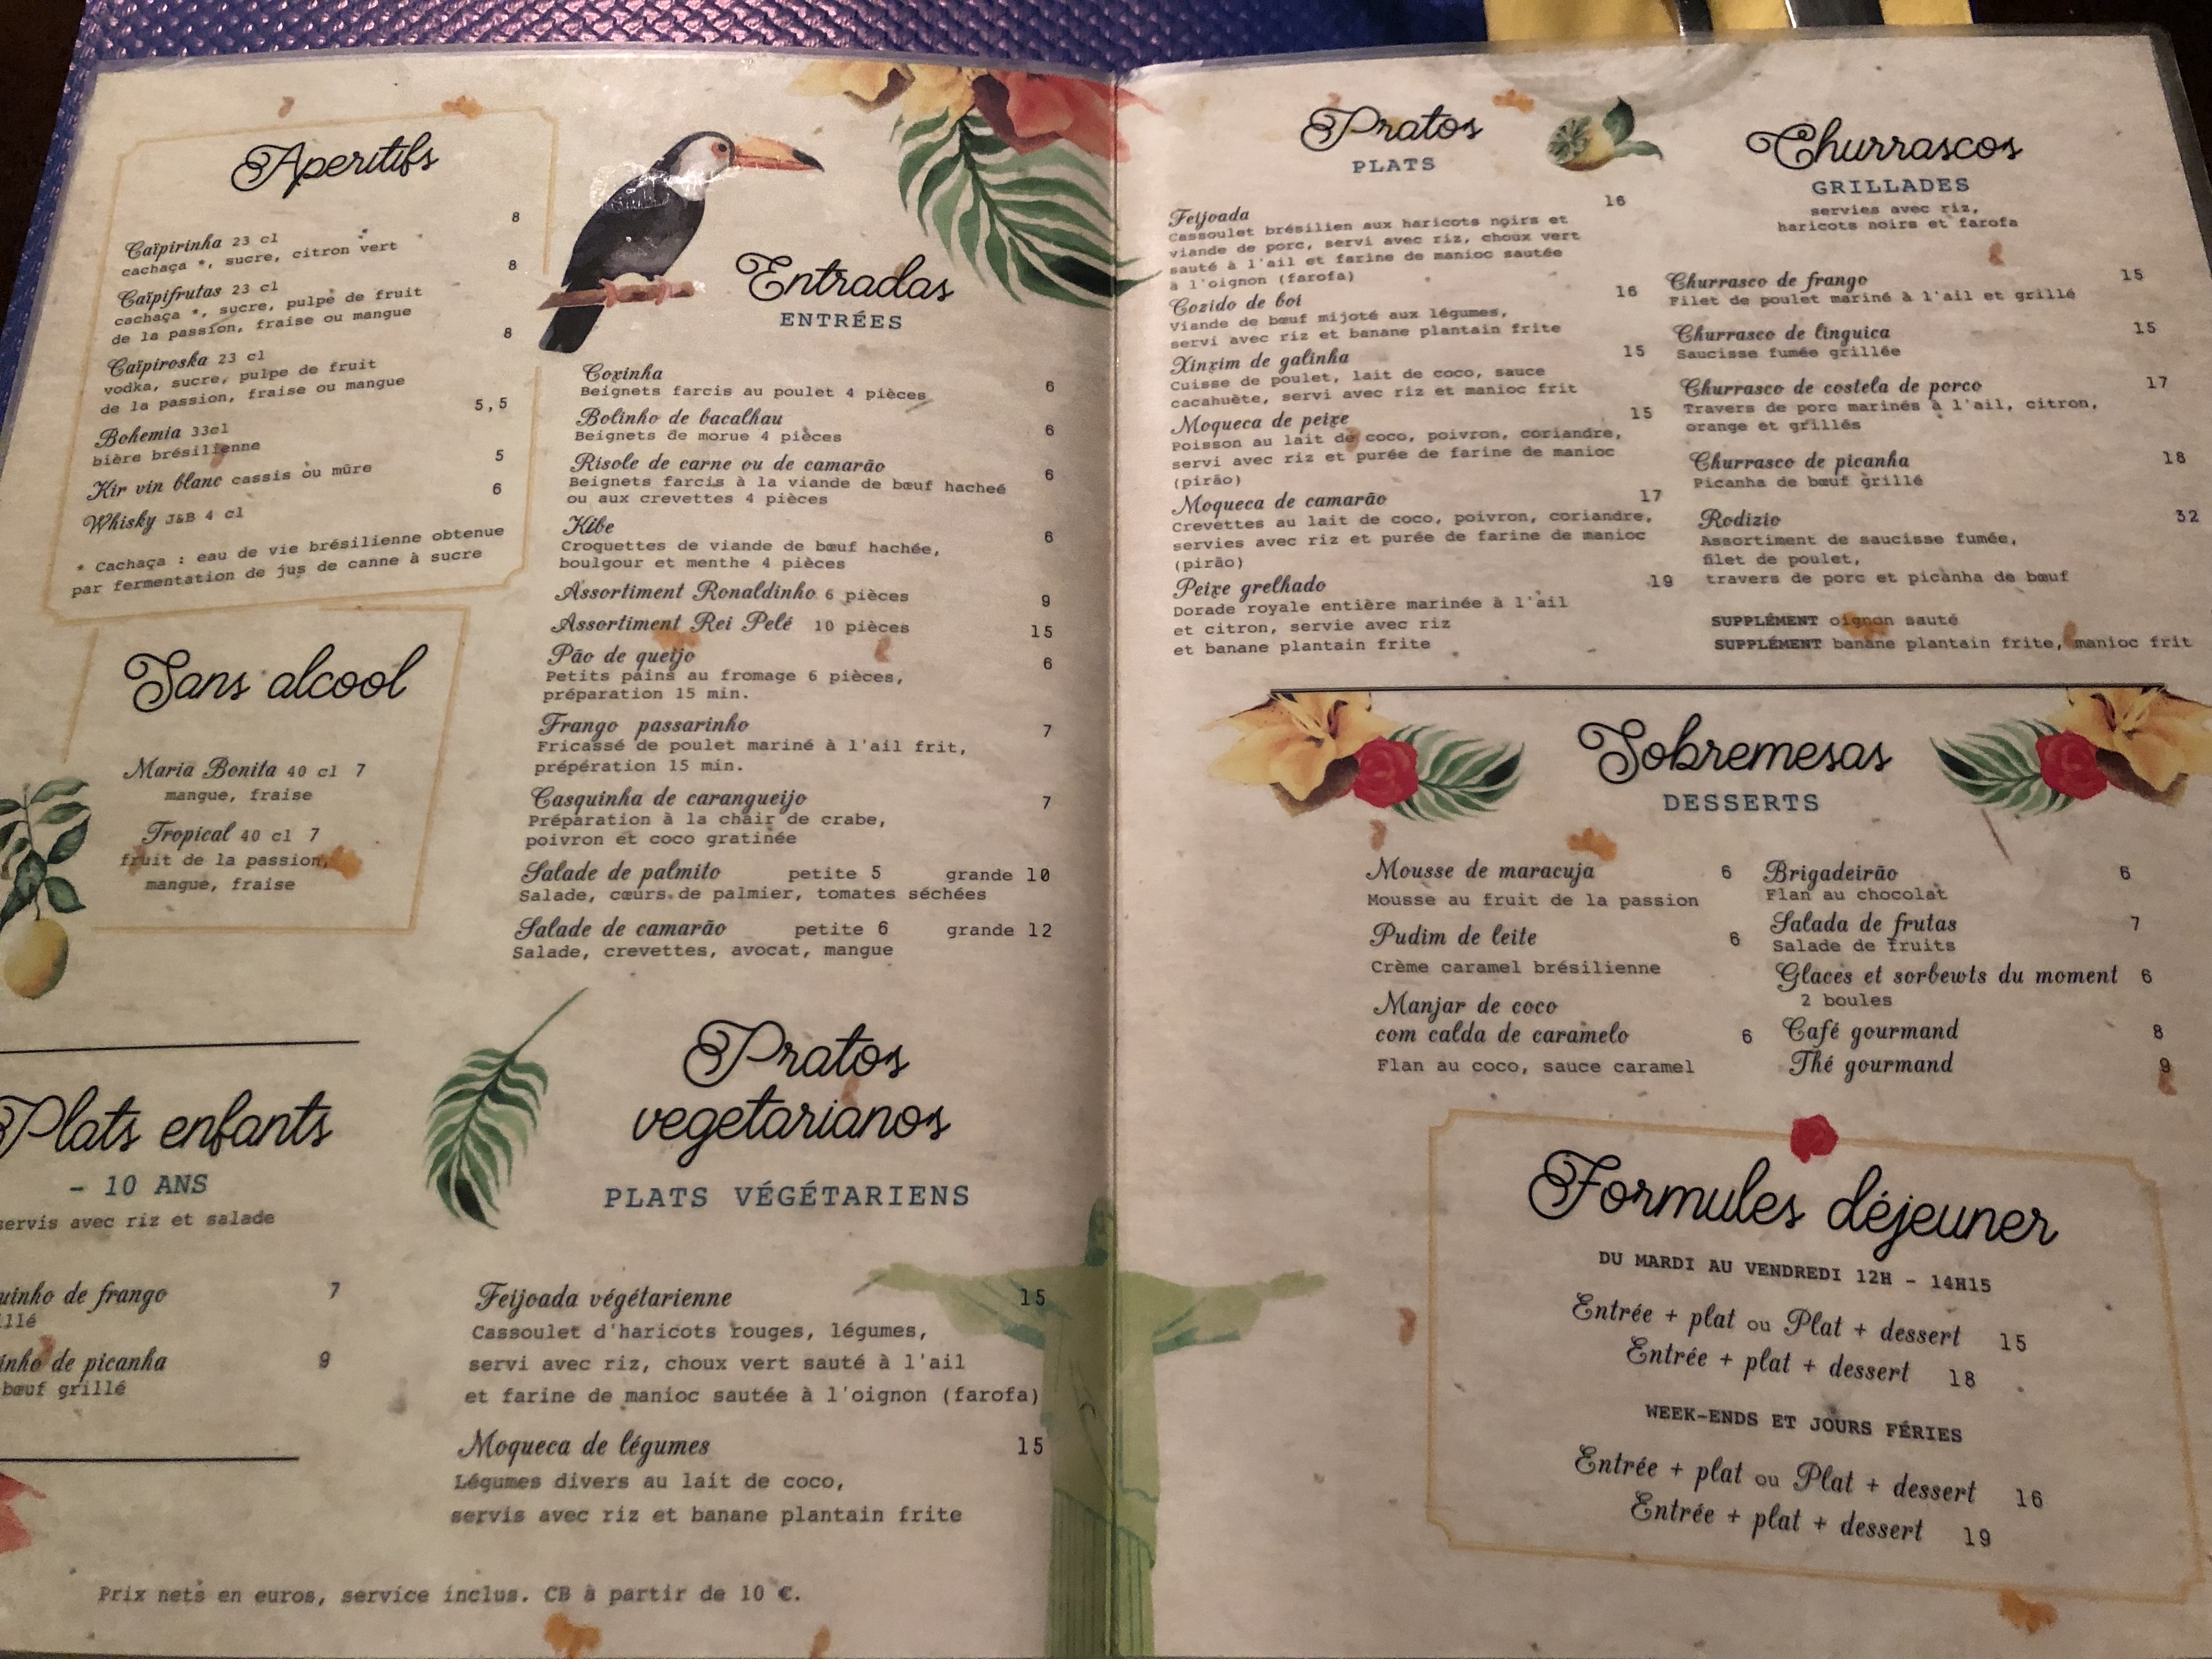 Aperitifs
Caïpirinha 23 cl 8
cachaça *, sucre, citron vert
Caïpifrutas 23 cl 8
cachaça *, sucre, pulpe de fruit
de la passion, fraise ou mangue
Caïpiroska 23 cl 8
vodka, sucre, pulpe de fruit
de la passion, fraise ou mangue
Bohemia 33cl 5,5
bière brésilienne
Kir vin blanc cassis ou mûre 5
Whisky J&B 4 cl 6
* Cachaça : eau de vie brésilienne obtenue
par fermentation de jus de canne à sucre
Sans alcool
Maria Bonita 40 cl 7
mangue, fraise
Tropical 40 cl 7
fruit de la passion,
mangue, fraise
Plats enfants
- 10 ANS
servis avec riz et salade
uinho de frango 7
illé
inho de picanha 9
bœuf grillé
Entradas
ENTRÉES
Coxinha
Beignets farcis au poulet 4 pièces 6
Bolinho de bacalhau
Beignets de morue 4 pièces 6
Risole de carne ou de camarão
Beignets farcis à la viande de bœuf hacheé 6
ou aux crevettes 4 pièces
Kibe
Croquettes de viande de bœuf hachée, 6
boulgour et menthe 4 pièces
Assortiment Ronaldinho 6 pièces 9
Assortiment Rei Pelé 10 pièces 15
Pão de queijo 6
Petits pains au fromage 6 pièces,
préparation 15 min.
Frango passarinho 7
Fricassé de poulet mariné à l'ail frit,
prépération 15 min.
Casquinha de carangueijo 7
Préparation à la chair de crabe,
poivron et coco gratinée
Salade de palmito petite 5 grande 10
Salade, cœurs de palmier, tomates séchées
Salade de camarão petite 6 grande 12
Salade, crevettes, avocat, mangue
Pratos
vegetarianos
PLATS VÉGÉTARIENS
Feijoada végétarienne 15
Cassoulet d'haricots rouges, légumes,
servi avec riz, choux vert sauté à l'ail
et farine de manioc sautée à l'oignon (farofa)
Moqueca de légumes 15
Légumes divers au lait de coco,
servis avec riz et banane plantain frite
Prix nets en euros, service inclus. CB à partir de 10 €.
Pratos
PLATS
Feijoada 16
Cassoulet brésilien aux haricots noirs et
viande de porc, servi avec riz, choux vert
sauté à l'ail et farine de manioc sautée
à l'oignon (farofa)
Cozido de boi 16
Viande de bœuf mijoté aux légumes,
servi avec riz et banane plantain frite
Xinxim de galinha 15
Cuisse de poulet, lait de coco, sauce
cacahuète, servi avec riz et manioc frit
Moqueca de peixe 15
Poisson au lait de coco, poivron, coriandre,
servi avec riz et purée de farine de manioc
(pirão)
Moqueca de camarão 17
Crevettes au lait de coco, poivron, coriandre,
servies avec riz et purée de farine de manioc
(pirão)
Peixe grelhado 19
Dorade royale entière marinée à l'ail
et citron, servie avec riz
et banane plantain frite
Churrascos
GRILLADES
servies avec riz,
haricots noirs et farofa
Churrasco de frango 15
Filet de poulet mariné à l'ail et grillé
Churrasco de linguica 15
Saucisse fumée grillée
Churrasco de costela de porco 17
Travers de porc marinés à l'ail, citron,
orange et grillés
Churrasco de picanha 18
Picanha de bœuf grillé
Rodizio 32
Assortiment de saucisse fumée,
filet de poulet,
travers de porc et picanha de bœuf
SUPPLÉMENT oignon sauté
SUPPLÉMENT banane plantain frite, manioc frit
Sobremesas
DESSERTS
Mousse de maracuja 6
Mousse au fruit de la passion
Pudim de leite 6
Crème caramel brésilienne
Manjar de coco
com calda de caramelo 6
Flan au coco, sauce caramel
Brigadeirão 6
Flan au chocolat
Salada de frutas 7
Salade de fruits
Glaces et sorbewts du moment 6
2 boules
Café gourmand 8
Thé gourmand 9
Formules déjeuner
DU MARDI AU VENDREDI 12H - 14H15
Entrée + plat ou Plat + dessert 15
Entrée + plat + dessert 18
WEEK-ENDS ET JOURS FÉRIES
Entrée + plat ou Plat + dessert 16
Entrée + plat + dessert 19